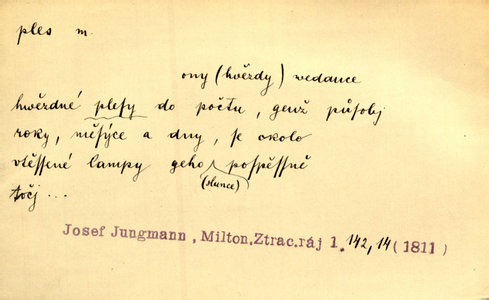 ples m.
ony (hvězdy) wedauce
hwězdné plesy do počtu, genž působj
roky, měsýce a dny, se okolo
vtěssené lampy geho pospěssně
(slunce)
točj ...
Josef Jungmann, Milton.Ztrac.ráj 1. 142, 14 (1811)